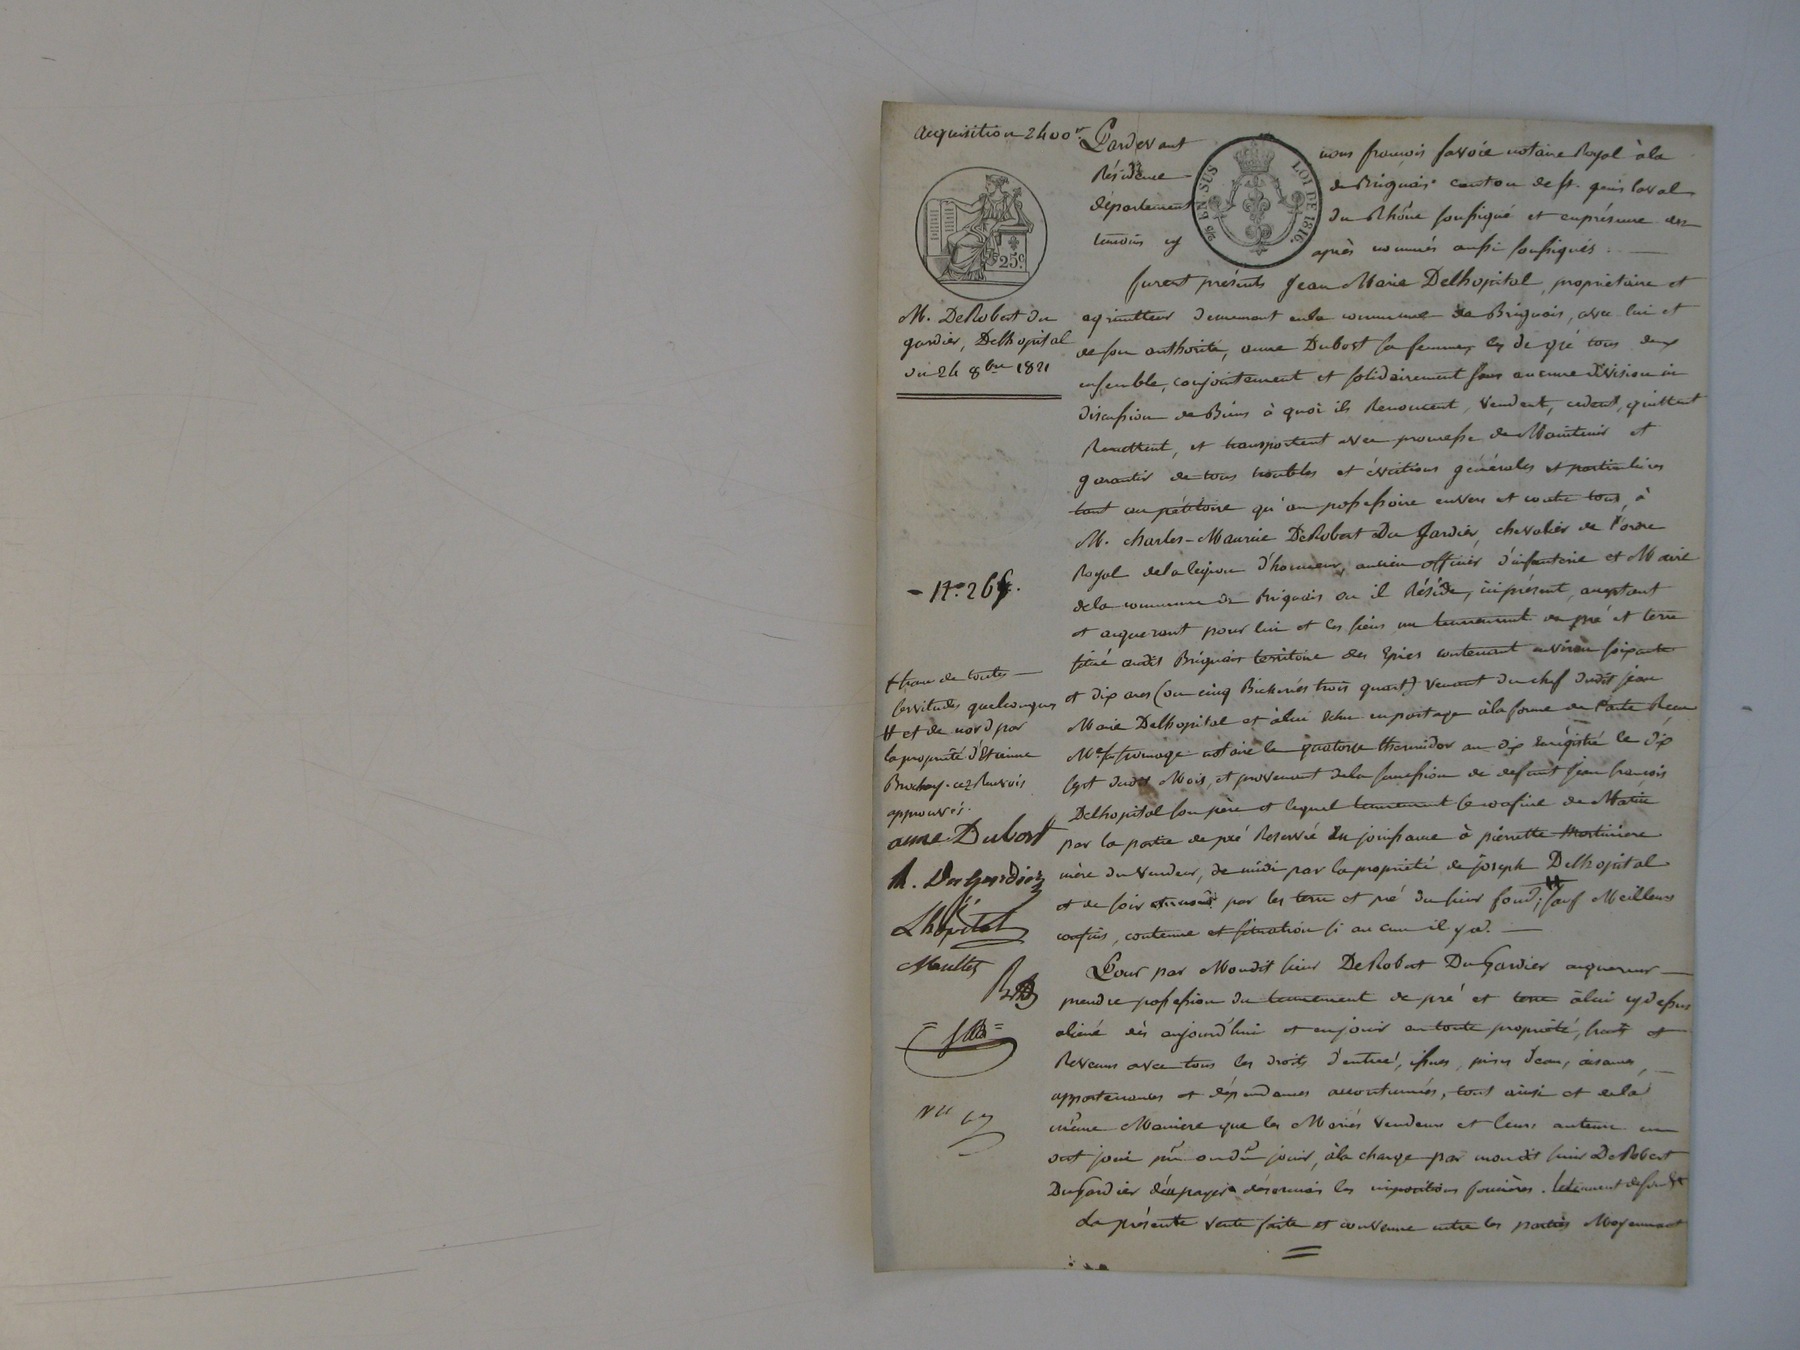 acquisition 2400fr
Pardevant nous françois favoie notaire Royal à la
Résidence de Brignais canton de St. genis laval
département du Rhône soussigné et en présence des
témoins cy après nommés aussi soussignés :
EN SUS
LOI DE 1816.
25c.
M. DeRobert du
gardier, Delhopital
du 24 8bre 1821
furent présents Jean Marie Delhopital, propriétaire et
agriculteur demeurant en la commune de Brignais, avec lui et
de son authorité, anne Dubost sa femme, les de gré tous deux
ensemble, conjointement et solidairement sans aucune division ni
discussion de Biens à quoi ils Renoncent, Vendent, cedent, quittent
Remettent, et transportent avec promesse de Maintenir et
garantir de tous troubles et évictions générales et particulières
tant au pétitoire qu'au possessoire envers et contre tous, à
M. charles-Maurice DeRobert Du Gardier, chevalier de l'ordre
Royal de la legion d'honneur, ancien officier d'infanterie et Maire
de la commune de Brignais ou il Réside, ici présent, acceptant
et acquerant pour lui et les siens un tennement en pré et terre
situé audit Brignais territoire des Epies contenant environ soixante
et dix ares (ou cinq Bicherées trois quart) venant du chef dudit jean
Marie Delhopital et à lui échu en partage à la forme de l'acte Reçu
Me fromage notaire le quatorze thermidor an dix Enregistré le dix
sept dudit Mois, et provenant de la succession de defunt jean françois
Delhopital son père et lequel tennement se confine de Matin
par la partie de pré Reservé en jouissance à pierrette Martiniere
mère du vendeur, de midi par la propriété de joseph Delhopital
et de soir par les terre et pré du sieur fond, # sauf Meilleurs
confins, contenue et situation si aucun il y a.
- No. 265.
+ franc de toutes
servitudes quelconques
# et de nord par
la propriété d'Etienne
Brochay. cez Renvois
approuvés.
anne Dubost
R. Du Gardier
Lhôpital
Maullet
Pour par Mondit sieur DeRobert DuGardier acquereur
prendre possession du tennement de pré et terre à lui cy dessus
aliené dès aujourd'hui et en jouir en toute propriété, fruits et
Revenus avec tous les droits d'entrée, issues, prises d'eau, aisances,
appartenances et dépendances accoutumées, tout ainsi et en la
même Maniere que les Mariés Vendeurs et leurs auteurs en
ont joui pu ou dû jouir, à la charge par mondit sieur DeRobert
DuGardier d'en payer désormais les impositions foncières.
La présente vente faite et convenue entre les parties Moyennant